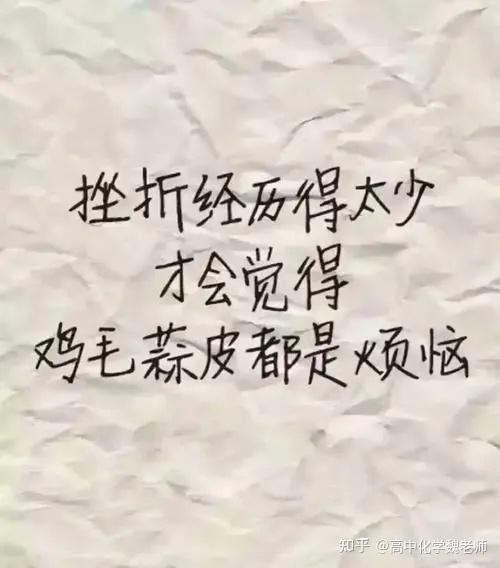 挫折经历得太少
才会觉得
鸡毛蒜皮都是烦恼
知乎 @高中化学魏老师